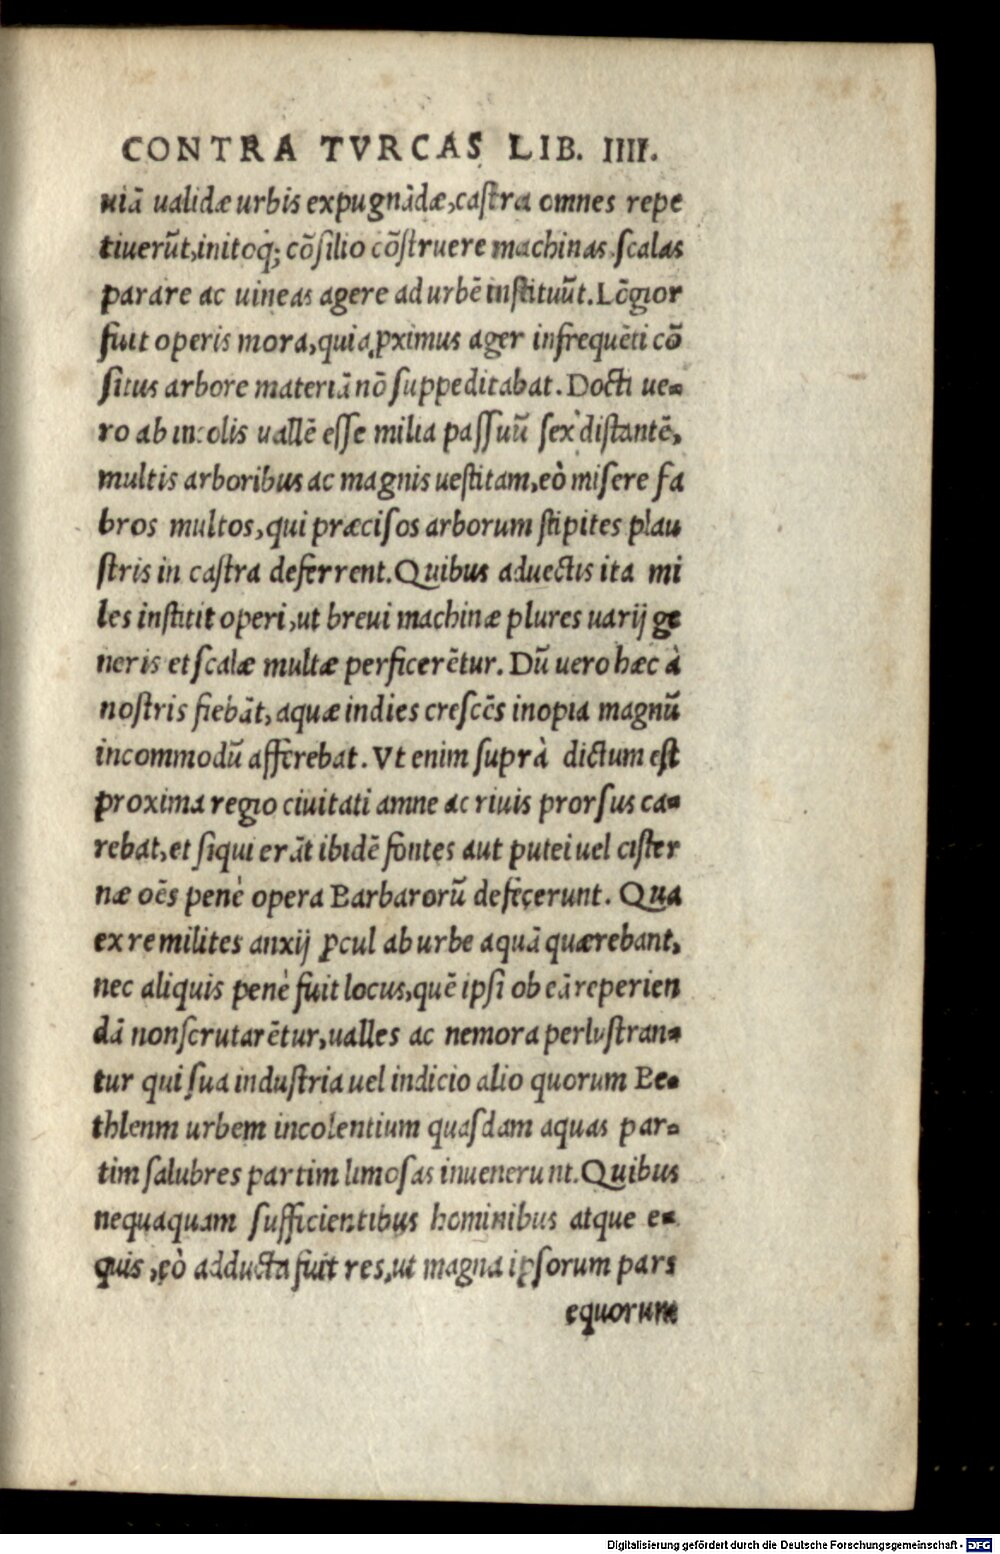 CONTRA TVRCAS LIB. IIII.
uiā ualidæ urbis expugnādæ, castra omnes repe
tiuerūt, initoq́; cōsilio cōstruere machinas, scalas
parare ac uineas agere ad urbē instituūt. Lōgior
fuit operis mora, quia ꝓximus ager infrequēti cō
situs arbore materiā nō suppeditabat. Docti ue-
ro ab incolis uallē esse milia passuū sex distantē,
multis arboribus ac magnis uestitam, eò misere fa
bros multos, qui præcisos arborum stipites plau
stris in castra deferrent. Quibus aduectis ita mi
les institit operi, ut breui machinæ plures uarij ge
neris et scalæ multæ perficerētur. Dū uero hæc à
nostris fiebāt, aquæ indies crescēs inopia magnū
incommodū afferebat. Vt enim suprà dictum est
proxima regio ciuitati amne ac riuis prorsus ca-
rebat, et siqui erāt ibidē fontes aut putei uel cister
næ oēs penè opera Barbarorū defecerunt. Qua
ex re milites anxij ꝓcul ab urbe aquā quærebant,
nec aliquis penè fuit locus, quē ipsi ob eā reperien
dā non scrutarētur, ualles ac nemora perlustran-
tur qui sua industria uel indicio alio quorum Be-
thlenm urbem incolentium quasdam aquas par-
tim salubres partim limosas inuenerunt. Quibus
nequaquam sufficientibus hominibus atque e-
quis, eò adducta fuit res, ut magna ipsorum pars
equorum
Digitalisierung gefördert durch die Deutsche Forschungsgemeinschaft - DFG